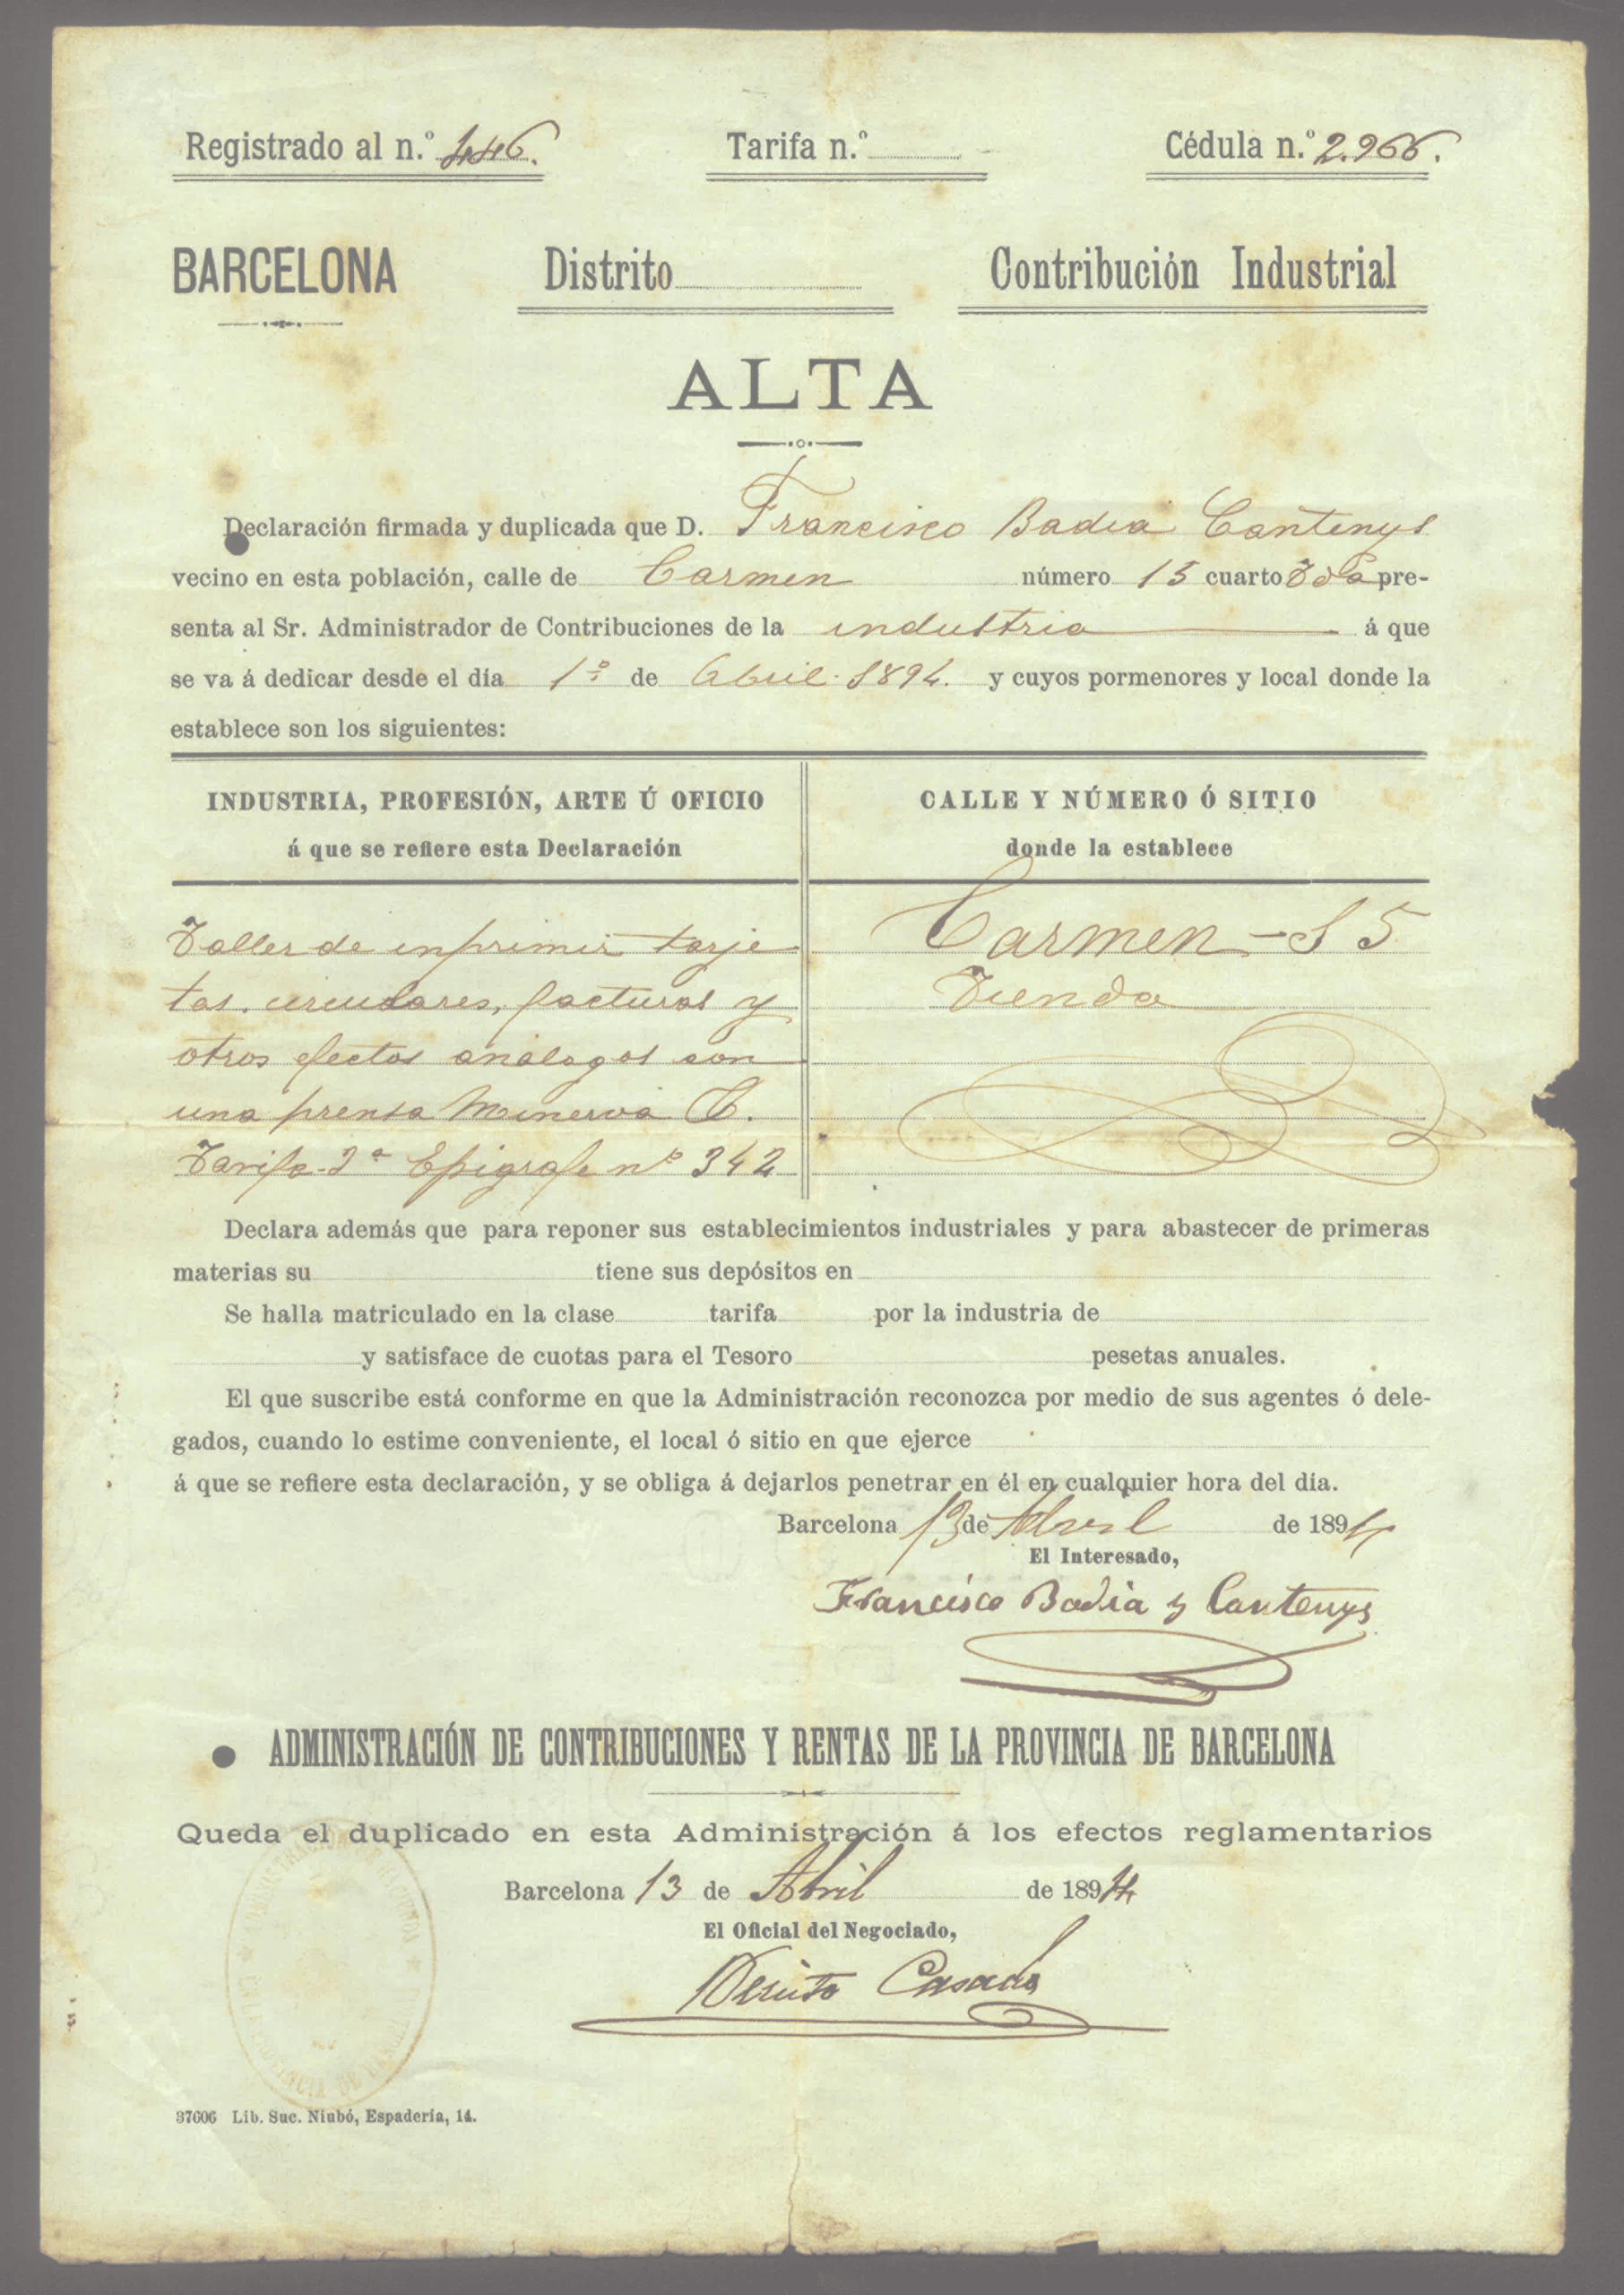 Registrado al n.º 446. Tarifa n.º Cédula n.º 2.966.
BARCELONA Distrito Contribución Industrial
ALTA
Declaración firmada y duplicada que D. Francisco Badia Cantenys
vecino en esta población, calle de Carmen número 15 cuarto Tda pre-
senta al Sr. Administrador de Contribuciones de la industria á que
se va á dedicar desde el día 1º de Abril 1894. y cuyos pormenores y local donde la
establece son los siguientes:
INDUSTRIA, PROFESIÓN, ARTE Ú OFICIO
á que se refiere esta Declaración
CALLE Y NÚMERO Ó SITIO
donde la establece
Taller de inprimir tarje
tas, circulares, facturas y
otros efectos análogos con
una prensa Minerva
Tarifa 3ª Epigrafe nº 342
Carmen - 15
Tienda
Declara además que para reponer sus establecimientos industriales y para abastecer de primeras
materias su tiene sus depósitos en
Se halla matriculado en la clase tarifa por la industria de
y satisface de cuotas para el Tesoro pesetas anuales.
El que suscribe está conforme en que la Administración reconozca por medio de sus agentes ó dele-
gados, cuando lo estime conveniente, el local ó sitio en que ejerce
á que se refiere esta declaración, y se obliga á dejarlos penetrar en él en cualquier hora del día.
Barcelona 13 de Abril de 1894
El Interesado,
Francisco Badia y Cantenys
ADMINISTRACIÓN DE CONTRIBUCIONES Y RENTAS DE LA PROVINCIA DE BARCELONA
Queda el duplicado en esta Administración á los efectos reglamentarios
Barcelona 13 de Abril de 1894
El Oficial del Negociado,
Casado
37606 Lib. Suc. Niubó, Espadería, 14.